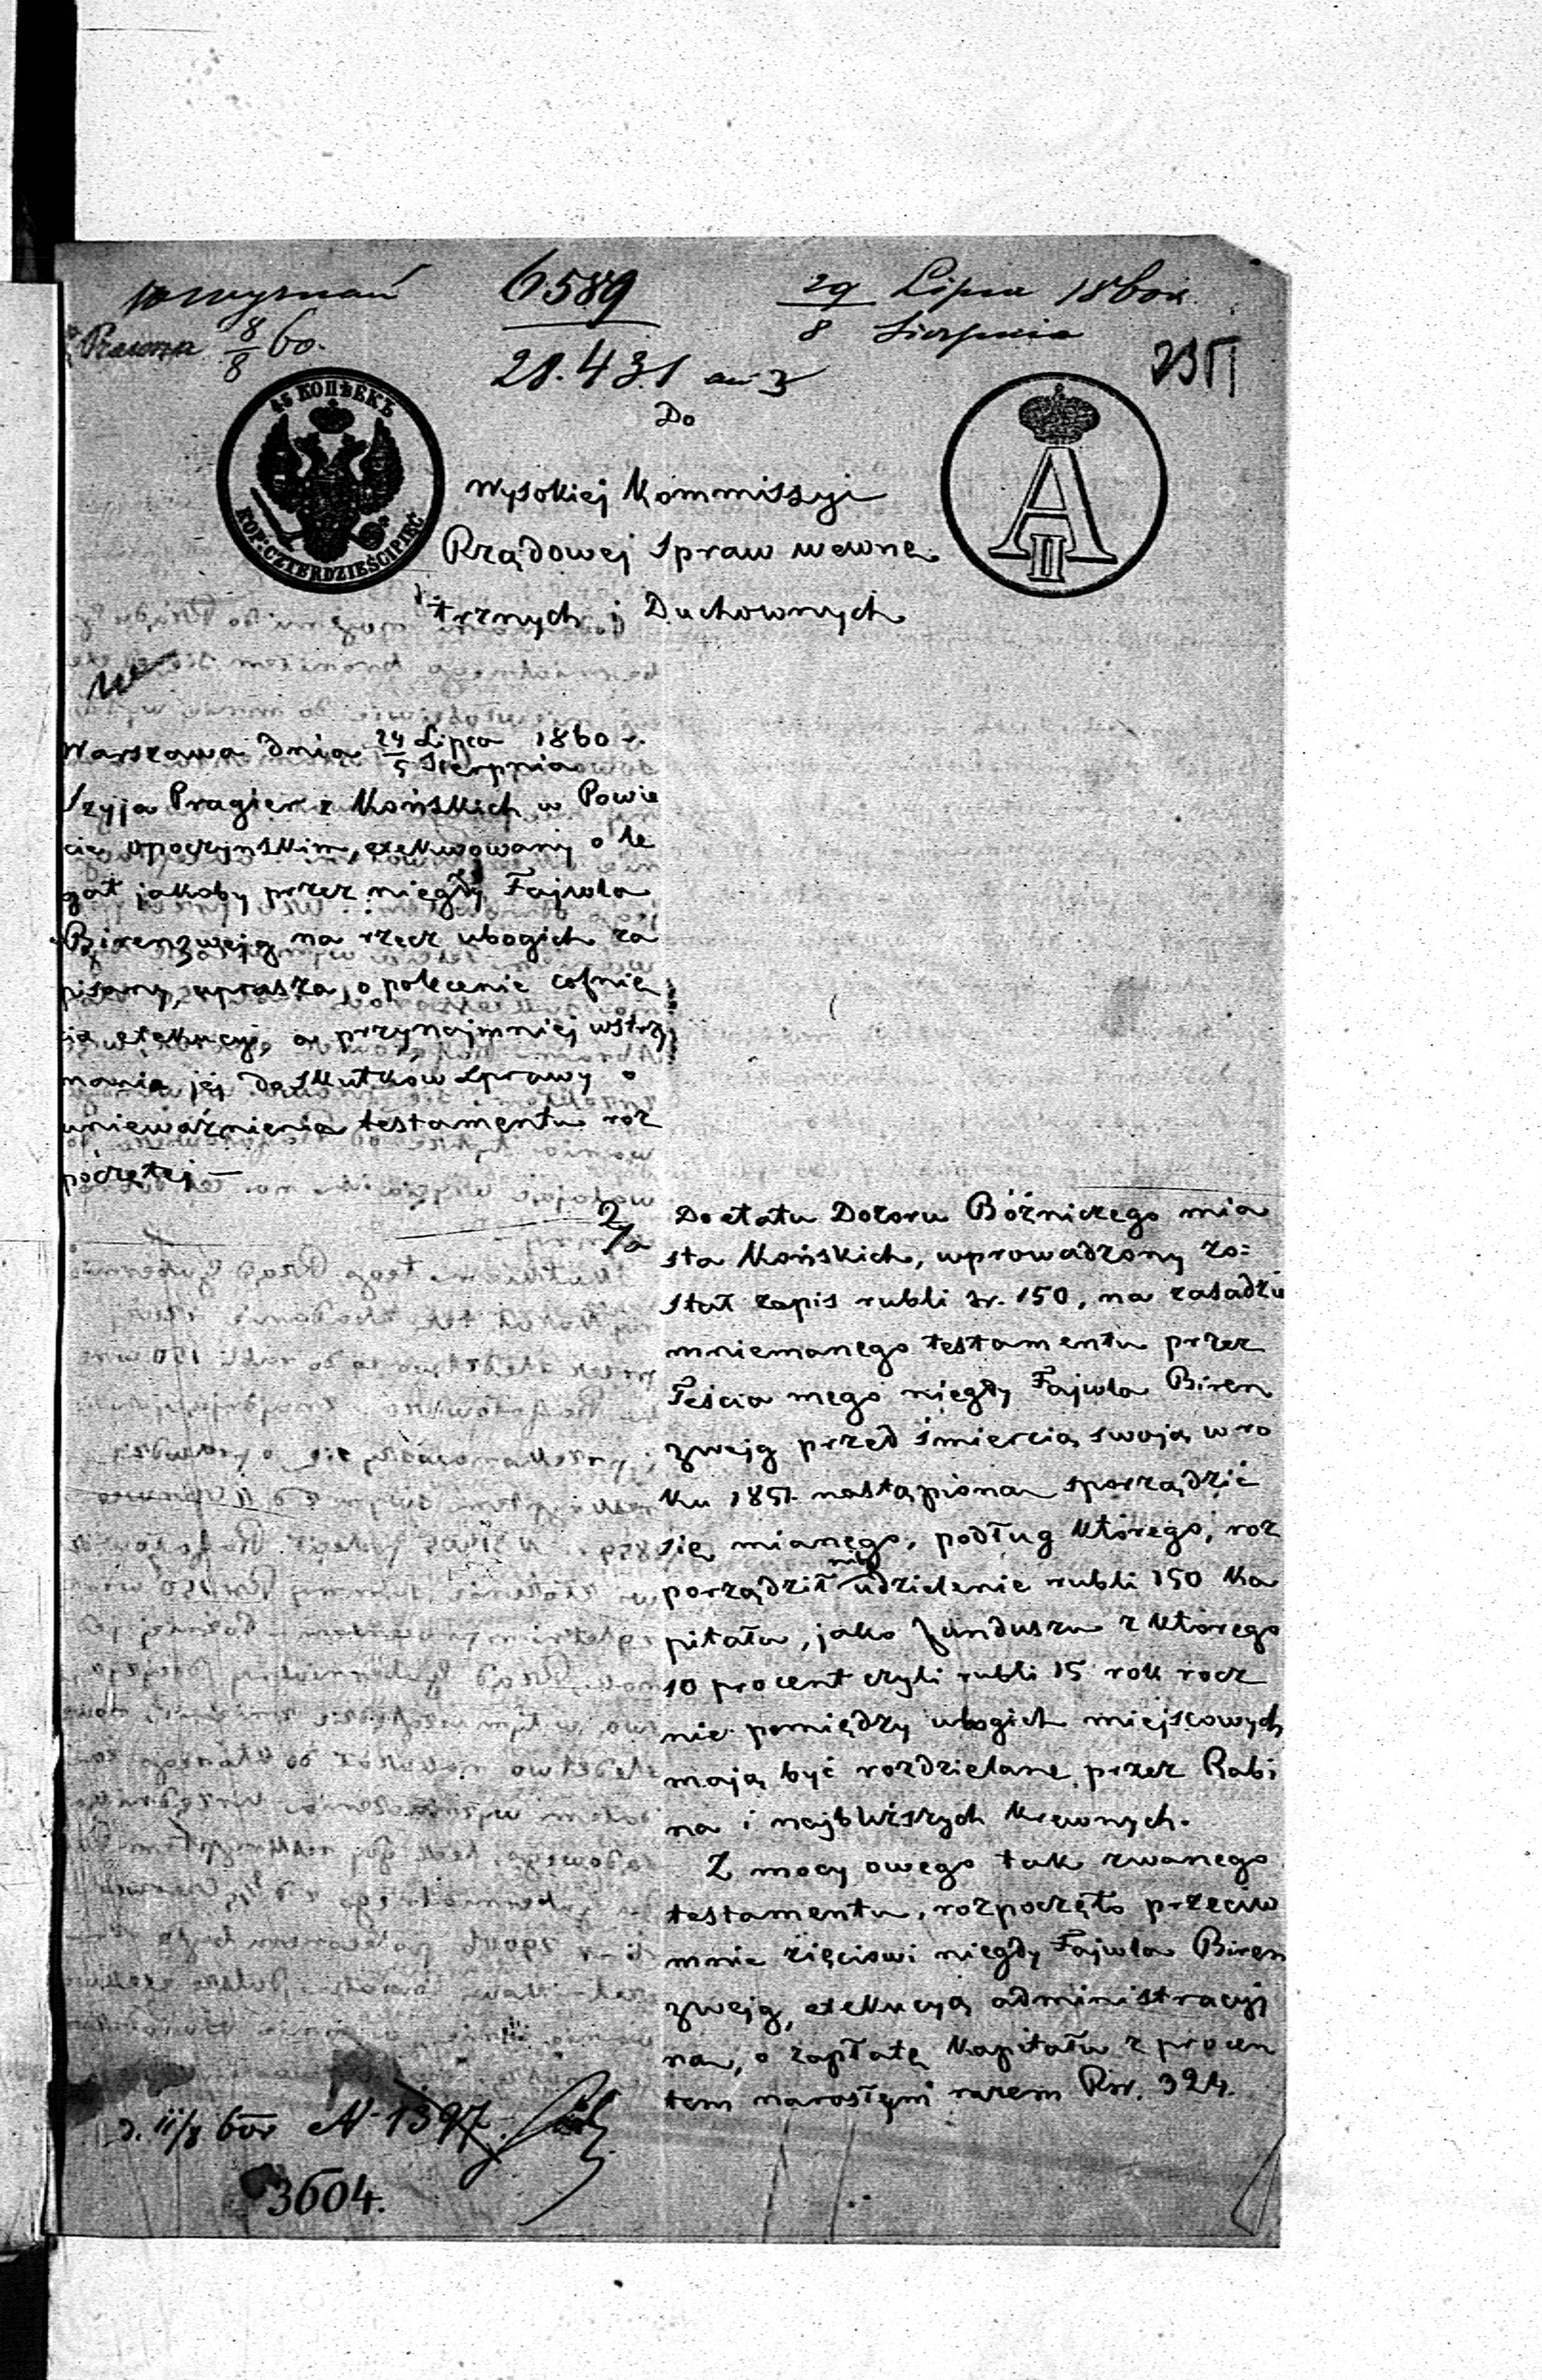 6589
29 Lipca 1860 r.
8 Sierpnia
8/8 60.
28.431
45 КОПѢЕКЪ
KOP: CZTERDZIEŚCI PIĘĆ
A
II
Do
Wysokiej Kommissyi
Rządowej Spraw Wewnę
trznych i Duchownych
Warszawa dnia 24 Lipca 1860 r.
5 Sierpnia
Szyja Pragier z Końskich w Powie
cie Opoczyńskim, exekwowany o le
gat jakoby przez niegdy Fajwla
Birenzwejg na rzecz ubogich za
pisany, uprasza o polecenie cofnię
cia exekucyi, a przynajmniej wstrzy
mania jej do skutków sprawy o
unieważnienia testamentu roz
poczętej —
Do etatu Dozoru Bóżniczego mia
sta Końskich, wprowadzony zo=
stał zapis rubli sr. 150, na zasadzie
mniemanego testamentu przez
Teścia mego niegdy Fajwla Biren
zwejg przed śmiercią swoją w ro
ku 1851. nastąpioną sporządzić
się mianego, podług którego, roz
porządził niby udzielenie rubli 150 ka
pitału, jako funduszu z którego
10 procent czyli rubli 15 rok rocz
nie pomiędzy ubogich miejscowych
mają być rozdzielane przez Rabi
na i najbliższych krewnych.
Z mocy owego tak zwanego
testamentu, rozpoczęto przeciw
mnie zięciowi niegdy Fajwla Biren
zwejg, exekucyą administracyj
ną, o zapłatę kapitału z procen
tem narosłym razem Rsr. 324.
d. 11/8 60 r N 1397.
3604.